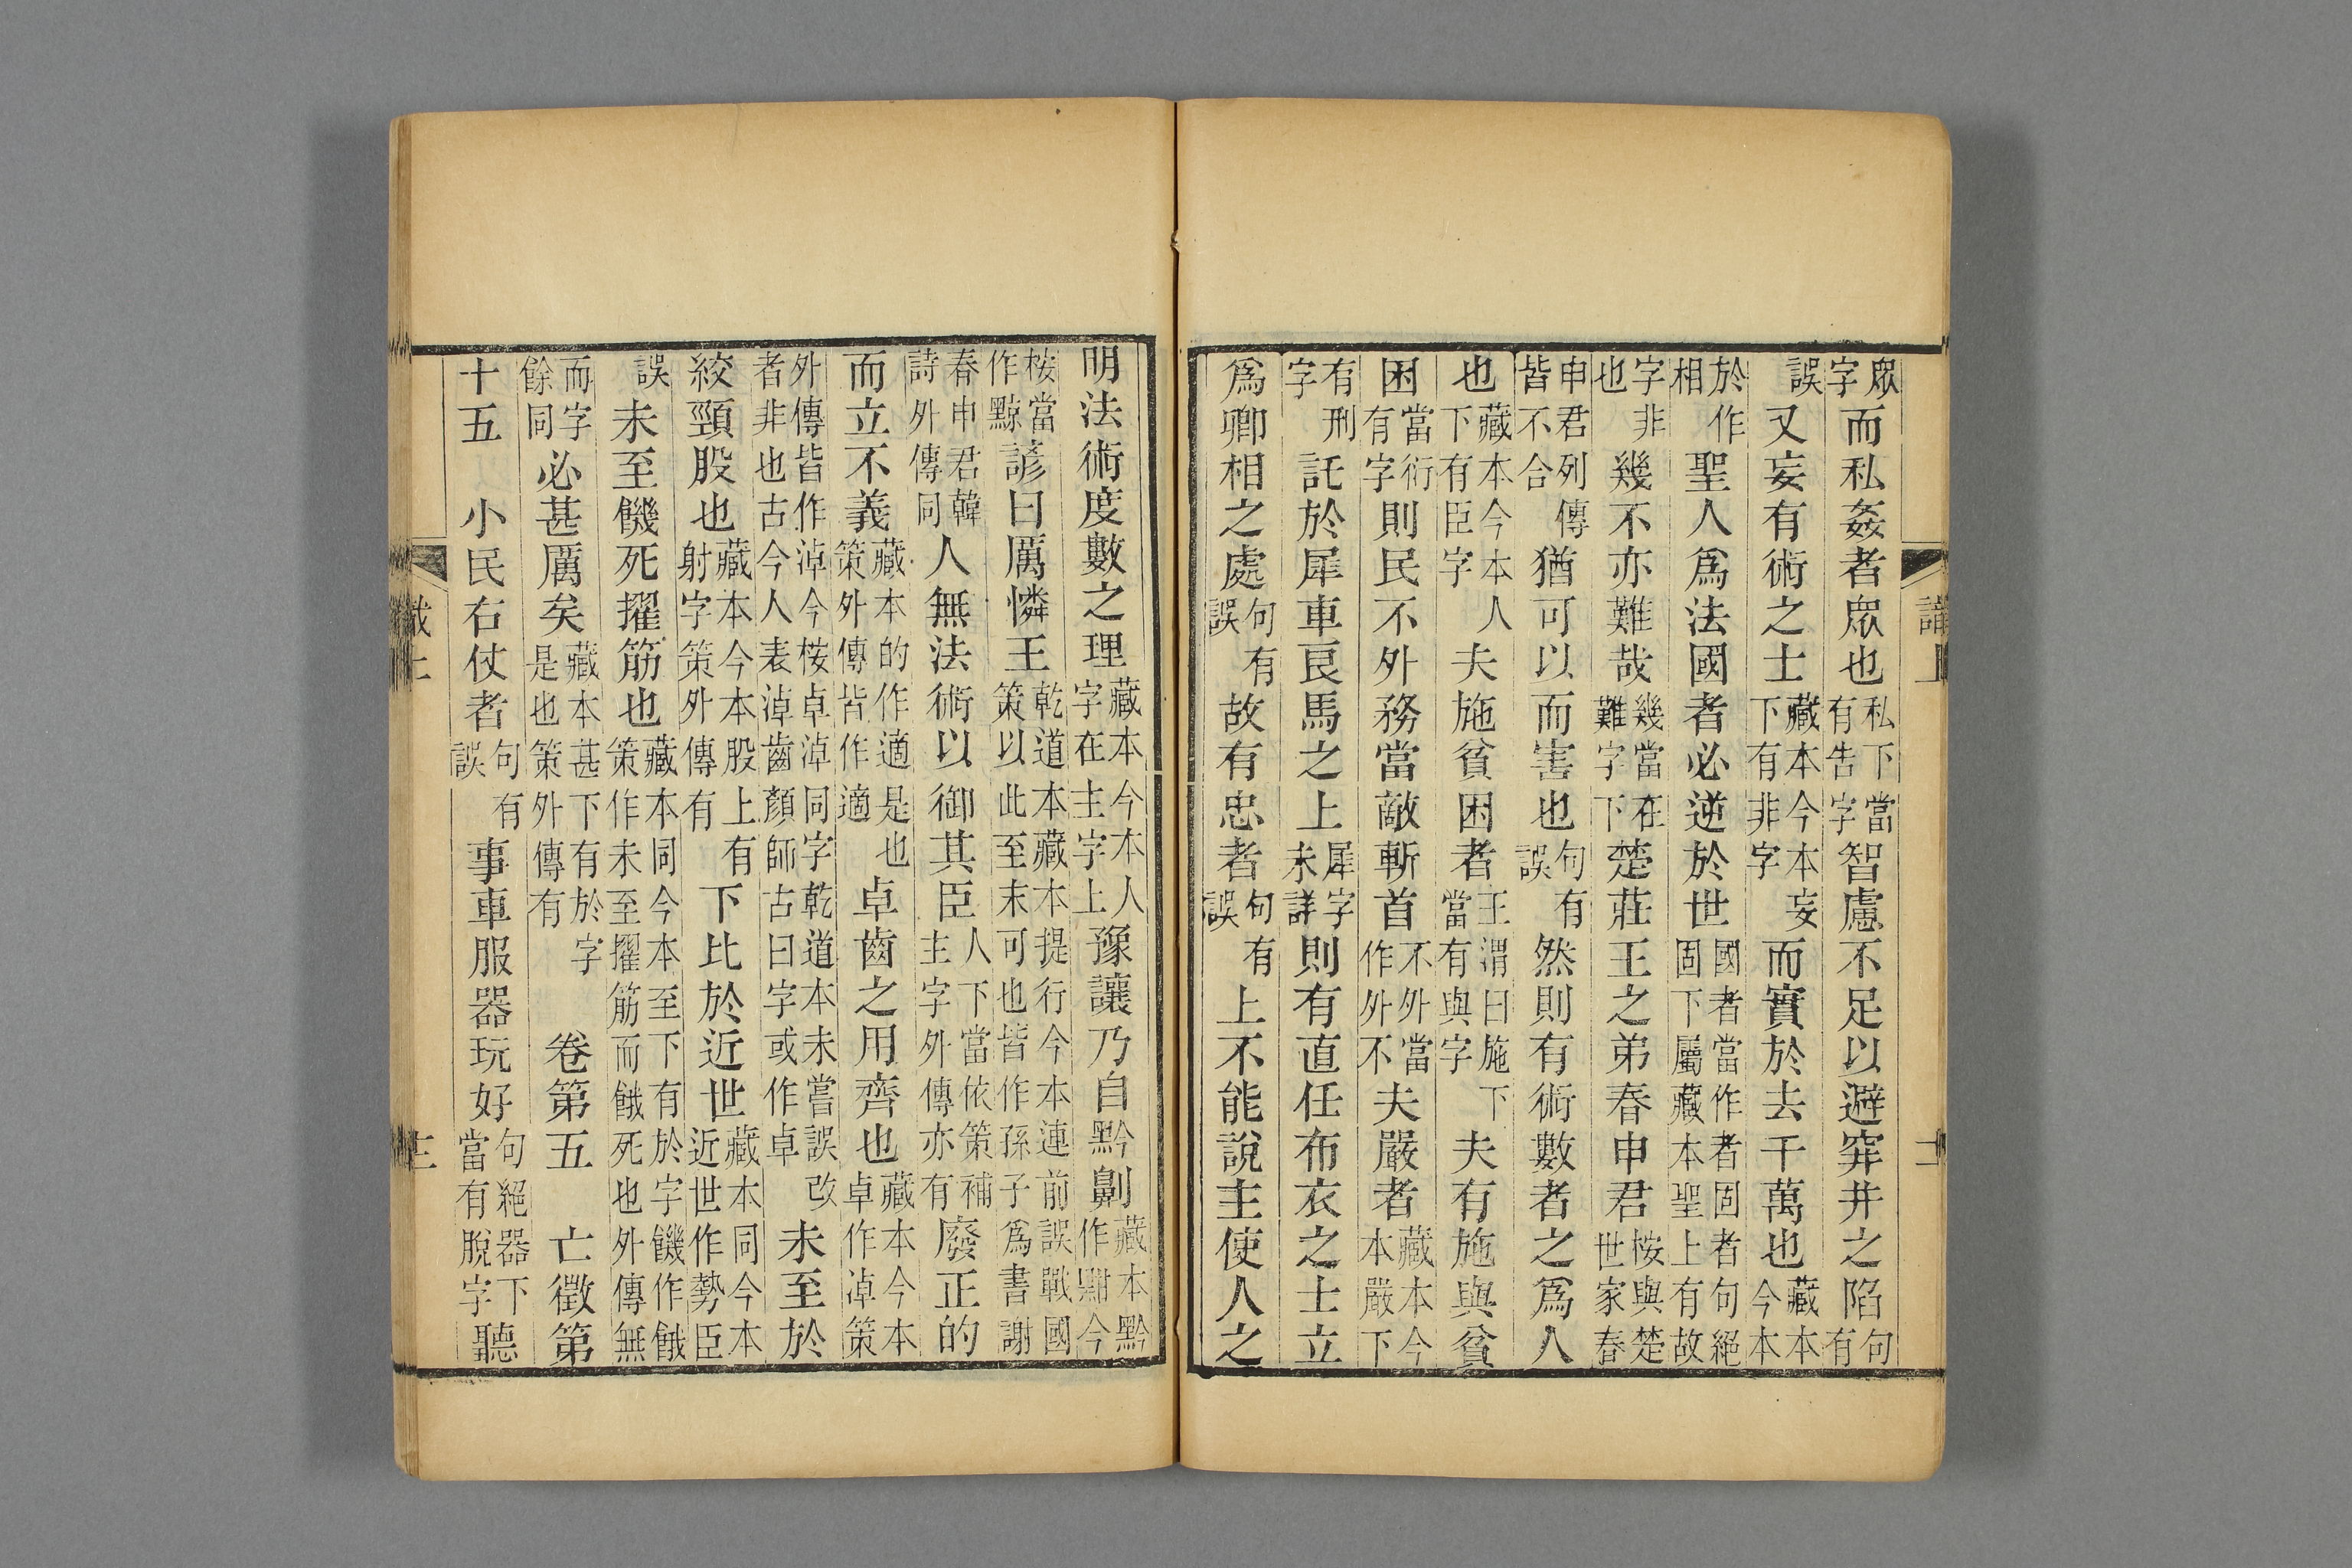 衆字而私姦者衆也私下當有告字智慮不足以避穽井之陷句有
誤又妄有術之士藏本今本妄下有非字而實於去千萬也藏本今本
於作相聖人爲法國者必逆於世國者當作者固者句絕固下屬藏本聖上有故
字非也幾不亦難哉幾當在難字下楚莊王之弟春申君桉與楚世家春
申君列傳皆不合猶可以而害也句有誤然則有術數者之爲人
也藏本今本人下有臣字夫施貧困者王渭曰施下當有與字夫有施與貧
困當衍有字則民不外務當敵斬首不外當作外不夫嚴者藏本今本嚴下
有刑字託於犀車良馬之上犀字未詳則有直任布衣之士立
爲卿相之處句有誤故有忠者句有誤上不能說主使人之
明法術度數之理藏本今本人字在主字上豫讓乃自黔劓藏本黔作黥今
桉當作黥諺曰厲憐王乾道本藏本提行今本連前誤戰國策以此至末可也皆作孫子爲書謝
春申君韓詩外傳同人無法術以御其臣人下當依策補主字外傳亦有廢正的
而立不義藏本的作適是也策外傳皆作適卓齒之用齊也藏本今本卓作淖策
外傳皆作淖今桉卓淖同字乾道本未嘗誤改者非也古今人表淖齒顏師古曰字或作卓未至於
絞頸股也藏本今本股上有射字策外傳有下比於近世藏本同今本近世作勢臣
誤未至饑死擢筋也藏本同今本至下有於字饑作餓策作未至擢筋而餓死也外傳無
而字餘同必甚厲矣藏本甚下有於字是也策外傳有 卷第五 亡徵第
十五 小民右仗者句有誤事車服器玩好句絕器下當有脫字聽